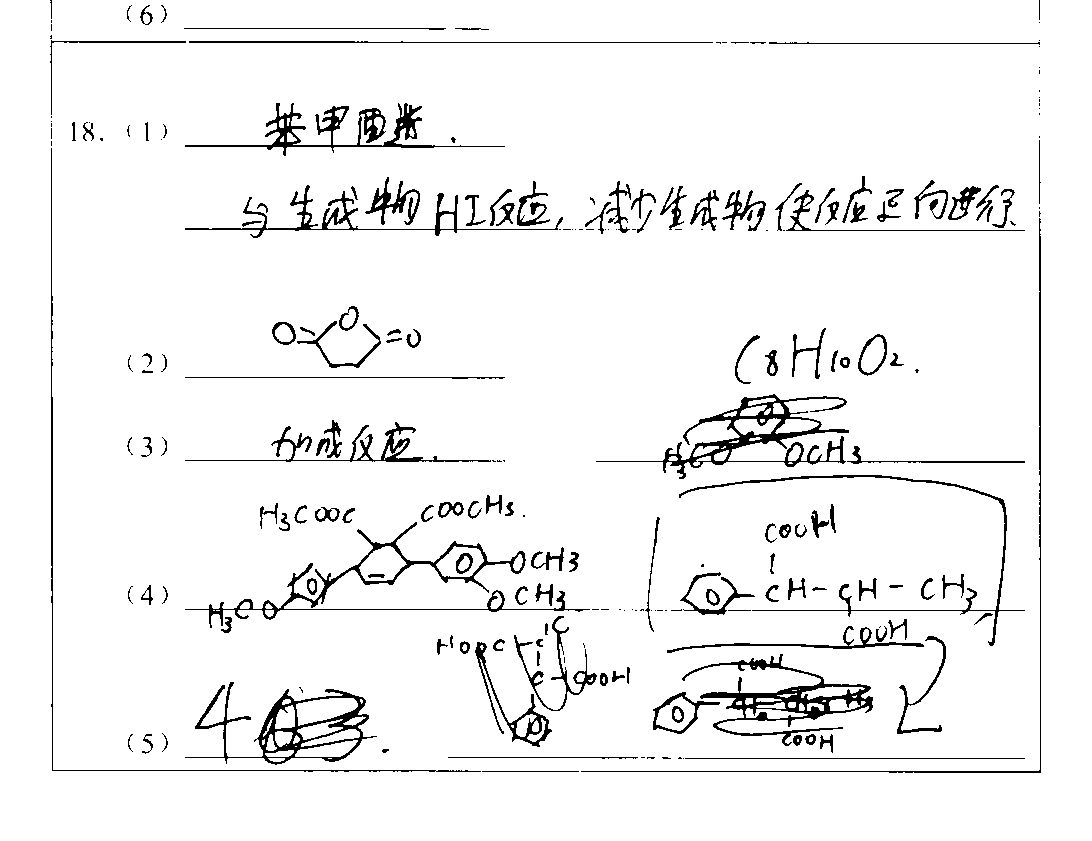 (6)
18. (1) 苯甲酉
与生成物HI反应,减少生成物使反应正向进行
(2) O= O =O
C8H10O2.
(3) 加成反应.
OCH3
H3COOC COOCH3.
(4) H3CO OCH3
OCH3
COOH
CH-CH-CH3
COOH
HOOC C C
C COOH
(5) 4
COOH
COOH